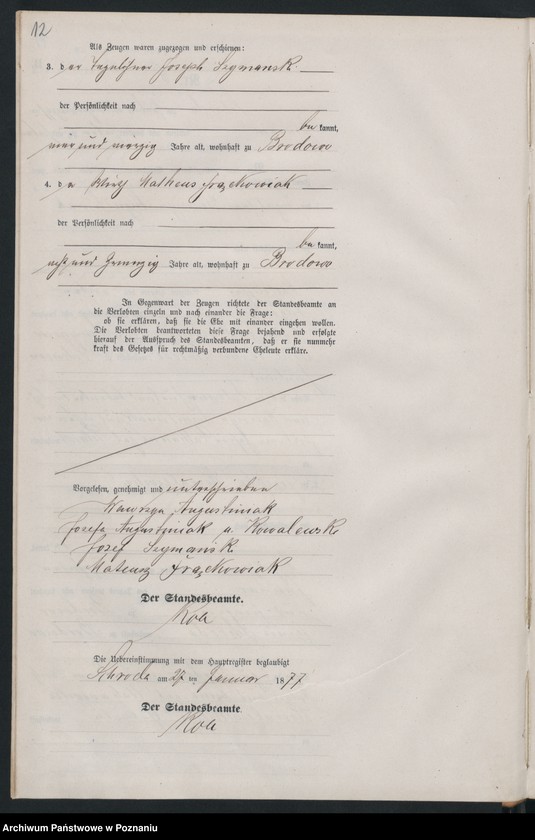 12
Als Zeugen waren zugezogen und erschienen:
3. der Joseph Szymanski
der Persönlichkeit nach
bekannt,
vier und vierzig Jahre alt, wohnhaft zu Brodowo
4. der Wirth Matheus Frąckowiak
der Persönlichkeit nach
bekannt,
acht und zwanzig Jahre alt, wohnhaft zu Brodowo
In Gegenwart der Zeugen richtete der Standesbeamte an
die Verlobten einzeln und nach einander die Frage:
ob sie erklären, daß sie die Ehe mit einander eingehen wollen.
Die Verlobten beantworteten diese Frage bejahend und erfolgte
hierauf der Ausspruch des Standesbeamten, daß er sie nunmehr
kraft des Gesetzes für rechtmäßig verbundene Eheleute erkläre.
Vorgelesen, genehmigt und unterschrieben
Wawrzyn Augustiniak
Josefa Augustiniak a. Kowalewsk
Jozef Szymański
Mateusz Frąckowiak
Der Standesbeamte.
Die Uebereinstimmung mit dem Hauptregister beglaubigt
Schroda am 27 ten Januar 1877
Der Standesbeamte
Archiwum Państwowe w Poznaniu